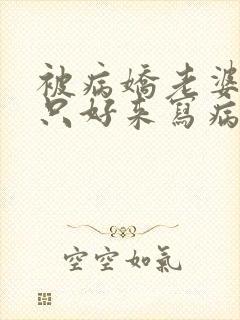 被病嬌老婆
只好來寫病
空空如氣